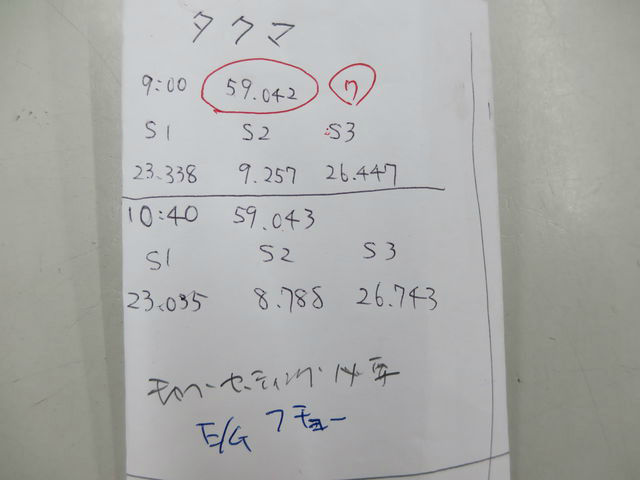 タクマ
9:00 59.042 7
S1 S2 S3
23.338 9.257 26.447
10:40 59.043
S1 S2 S3
23.035 8.788 26.743
セッティング
E/G フキョー